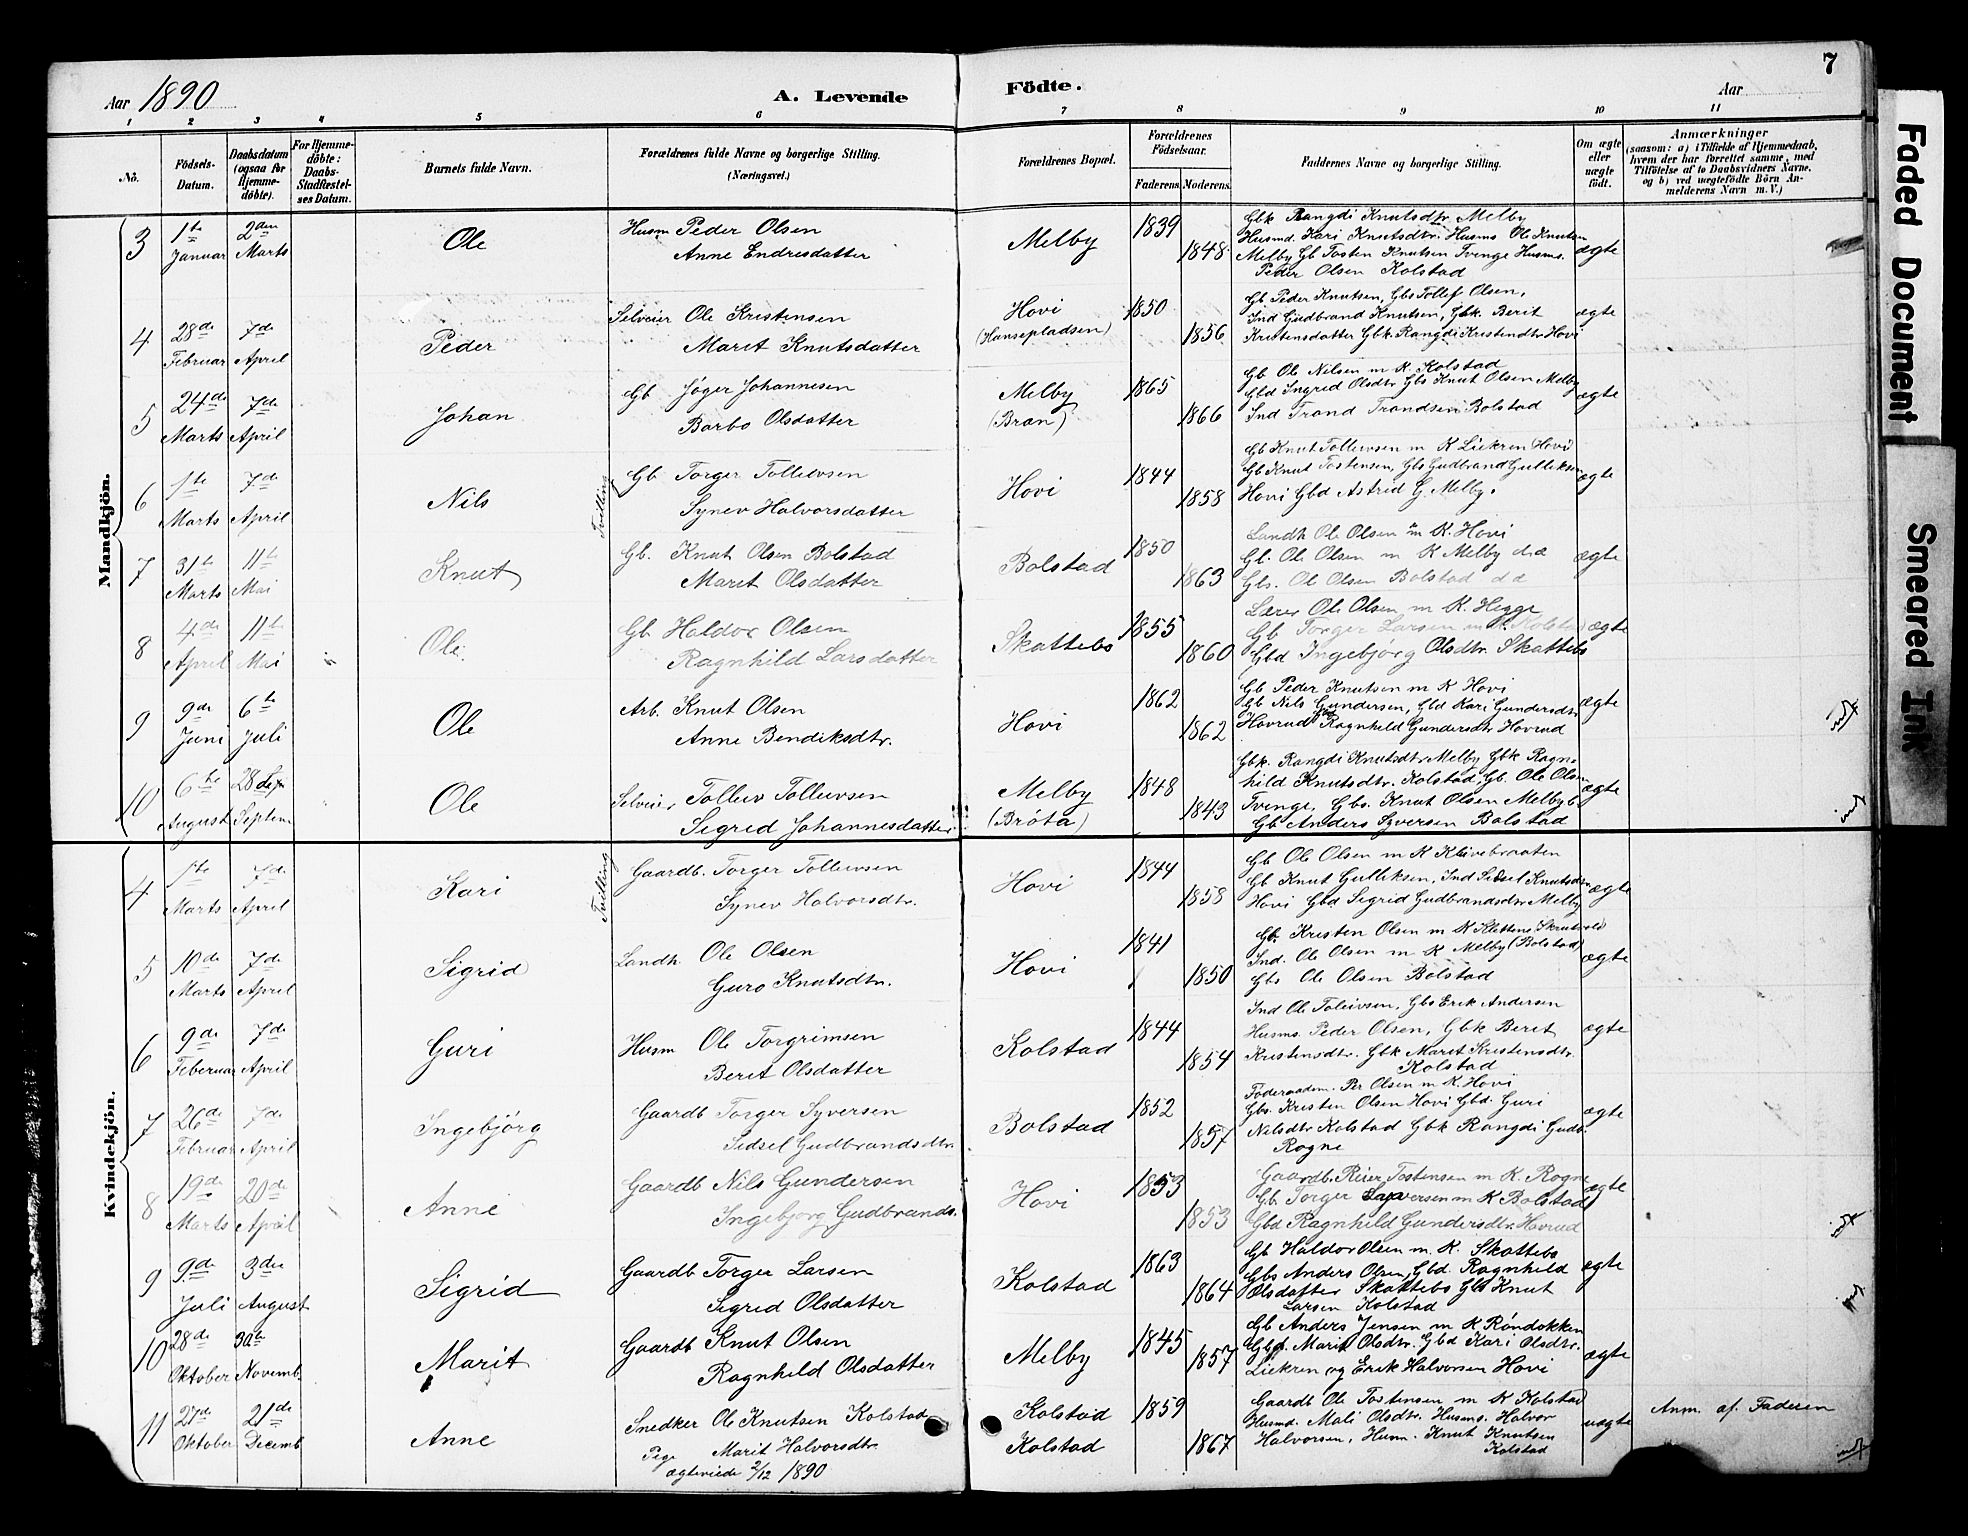 7
Aar 1890
A. Levende Födte.
Aar
1 2 3 4 5 6 7 8 9 10 11
No.
Födsels-Datum.
Daabsdatum (ogsaa for Hjemme-döbte).
For Hjemme-döbte: Daabs-Stadfæstel-ses Datum.
Barnets fulde Navn.
Forældrenes fulde Navne og borgerlige Stilling. (Næringsvei.)
Forældrenes Bopæl.
Forældrenes Födselsaar.
Faderens. Moderens.
Faddernes Navne og borgerlige Stilling.
Om ægte eller uægte födt.
Anmærkninger (saasom: a) i Tilfælde af Hjemmedaab, hvem der har forrettet samme, med Tilföielse af to Daabsvidners Navne, og b) ved uægtefödte Börn An-melderens Navn m. V.)
Mandkjön.
3 1te Januar 2den Marts Ole
Husm Peder Olsen
Anne Endresdatter
Melby 1839 1848
Gbk Rangdi Knutsdtr. Melby
Husmd. Kari Knutsdtr. Husms Ole Knutsen
Melby Gb Tosten Knutsen Tvenge Husms.
Peder Olsen Kolstad
ægte
4 28de Februar 7de April Peder
Selveier Ole Kristensen
Marit Knutsdatter
Hovi (Hansepladsen) 1850 1856
Gb Peder Knutsen, Gbs Tollef Olsen,
Ind Gudbrand Knutsen, Gbk. Berit
Kristensdatter Gbk. Rangdi Kristendtr Hovi
ægte
5 24de Marts 7de April Johan
Gb Jøger Johannesen
Barbo Olsdatter
Melby (Bran) 1865 1866
Gb Ole Nilsen m K. Kolstad
Gbd Ingrid Olsdtr Gbs Knut Olsen Melby
Ind Trand Trandsen Bolstad
ægte
6 1te Marts 7de April Nils
Tvilling
Gb Torger Tollevsen
Synev Halvorsdatter
Hovi 1844 1858
Gb Knut Tollevsen m K Liekren Hovi
Gb Knut Tostensen, Gbs Gudbrand Gulliksen
Hovi Gbd Astrid G. Melby.
ægte
7 31te Marts 11te Mai Knut
Gb. Knut Olsen Bolstad
Marit Olsdatter
Bolstad 1850 1863
Landh Ole Olsen m K. Hovi
Gb. Ole Olsen m K Melby
Gbs. Ole Olsen Bolstad
ægte
8 4de April 11te Mai Ole
Gb Haldor Olsen
Ragnhild Larsdatter
Skattebo 1855 1860
Lærer Ole Olsen m K. Hegge
Gb Torger Larsen m K. Kolstad
Gbd Ingebjørg Olsdtr. Skattebo
ægte
9 9de Juni 6te Juli Ole
Arb. Knut Olsen
Anne Bendiksdtr.
Hovi 1862 1862
Gb Peder Knutsen m K Hovi
Gb Nils Gundersen, Gbd Kari Gundersdtr
Hovrud Gbd Ragnhild Gundersdtr Hovrud
ægte
10 6te August 28de Septem Ole
Selveier Tollev Tollevsen
Sigrid Johannesdatter
Melby (Bröta) 1848 1843
Gbk. Rangdi Knutsdtr Melby Gbk Ragn-
hild Knutsdtr. Kolstad, Gb. Ole Olsen
Tvenge, Gbs. Knut Olsen Melby
Gb Anders Syversen Bolstad
ægte
Kvindekjön.
4 1te Marts 7de April Kari
Tvilling
Gaardb. Torger Tollevsen
Synev Halvorsdtr.
Hovi 1844 1858
Gb Ole Olsen m K Klivebraaten
Gb Knut Gulliksen, Ind Sidsel Knutsdtr
Hovi Gbd Sigrid Gudbrandsdtr Melby
ægte
5 10de Marts 7de April Sigrid
Landh. Ole Olsen
Guro Knutsdtr.
Hovi 1841 1850
Gb. Kristen Olsen m K Klettens
Ind. Ole Olsen m. K Melby (Bolstad)
Gbs Ole Olsen Bolstad
ægte
6 9de Februar 7de April Guri
Husm Ole Torgrimsen
Berit Olsdatter
Kolstad 1844 1854
Ind Ole Toleivsen, Gbs Erik Andersen
Husms Peder Olsen, Gbk Beret
Kristensdtr. Gbk Marit Kristensdtr.
Kolstad
ægte
7 26de Februar 7de April Ingebjörg
Gaardb Torger Syversen
Sidsel Gudbrandsdtr
Bolstad 1852 1857
Föderaadsm. Per Olsen m K. Hovi
Gbs. Kristen Olsen Hovi Gbd. Guri
Nilsdtr Kolstad Gbk Rangdi Gudb.
Rogne
ægte
8 19de Marts 20de April Anne
Gaardb Nils Gundersen
Ingebjorg Gudbrands.
Hovi 1853 1853
Gaardb. Reier Tostensen m K. Rogne
Gb. Torger Syversen m K Bolstad
Gbd Ragnhild Gundersdtr Hovrud
ægte
9 9de Juli 3die August Sigrid
Gaardb Torger Larsen
Sigrid Olsdatter
Kolstad 1863 1864
Gb Haldor Olsen m. K. Skattebo
Gbs Anders Olsen, Gbd. Ragnhild
Olsdatter Skattebo Gbs Knut
Larsen Kolstad
ægte
10 28de Oktober 30te Novemb. Marit
Gaardb Knut Olsen
Ragnhild Olsdatter
Melby 1845 1857
Gb Anders Jensen m K Röndokken
Gbd. Marit Olsdtr. Gbd Kari Olsdtr.
Liekren og Erik Halvorsen Hovi
ægte
11 27de Oktober 21de Decemb Anne
Snedker Ole Knutsen Kolstad
Pige Marit Halvorsdtr.
ægteviede 2/12 1890
Kolstad
Kolstad
1859 1867
Gaardb Ole Tostensen m K Kolstad
Husmd. Mali Olsdtr. Husms. Halvor
Halvorsen, Husm. Knut Knutsen
Kolstad
uægte
Anm. af. Faderen
Faded Document
Smeared Ink